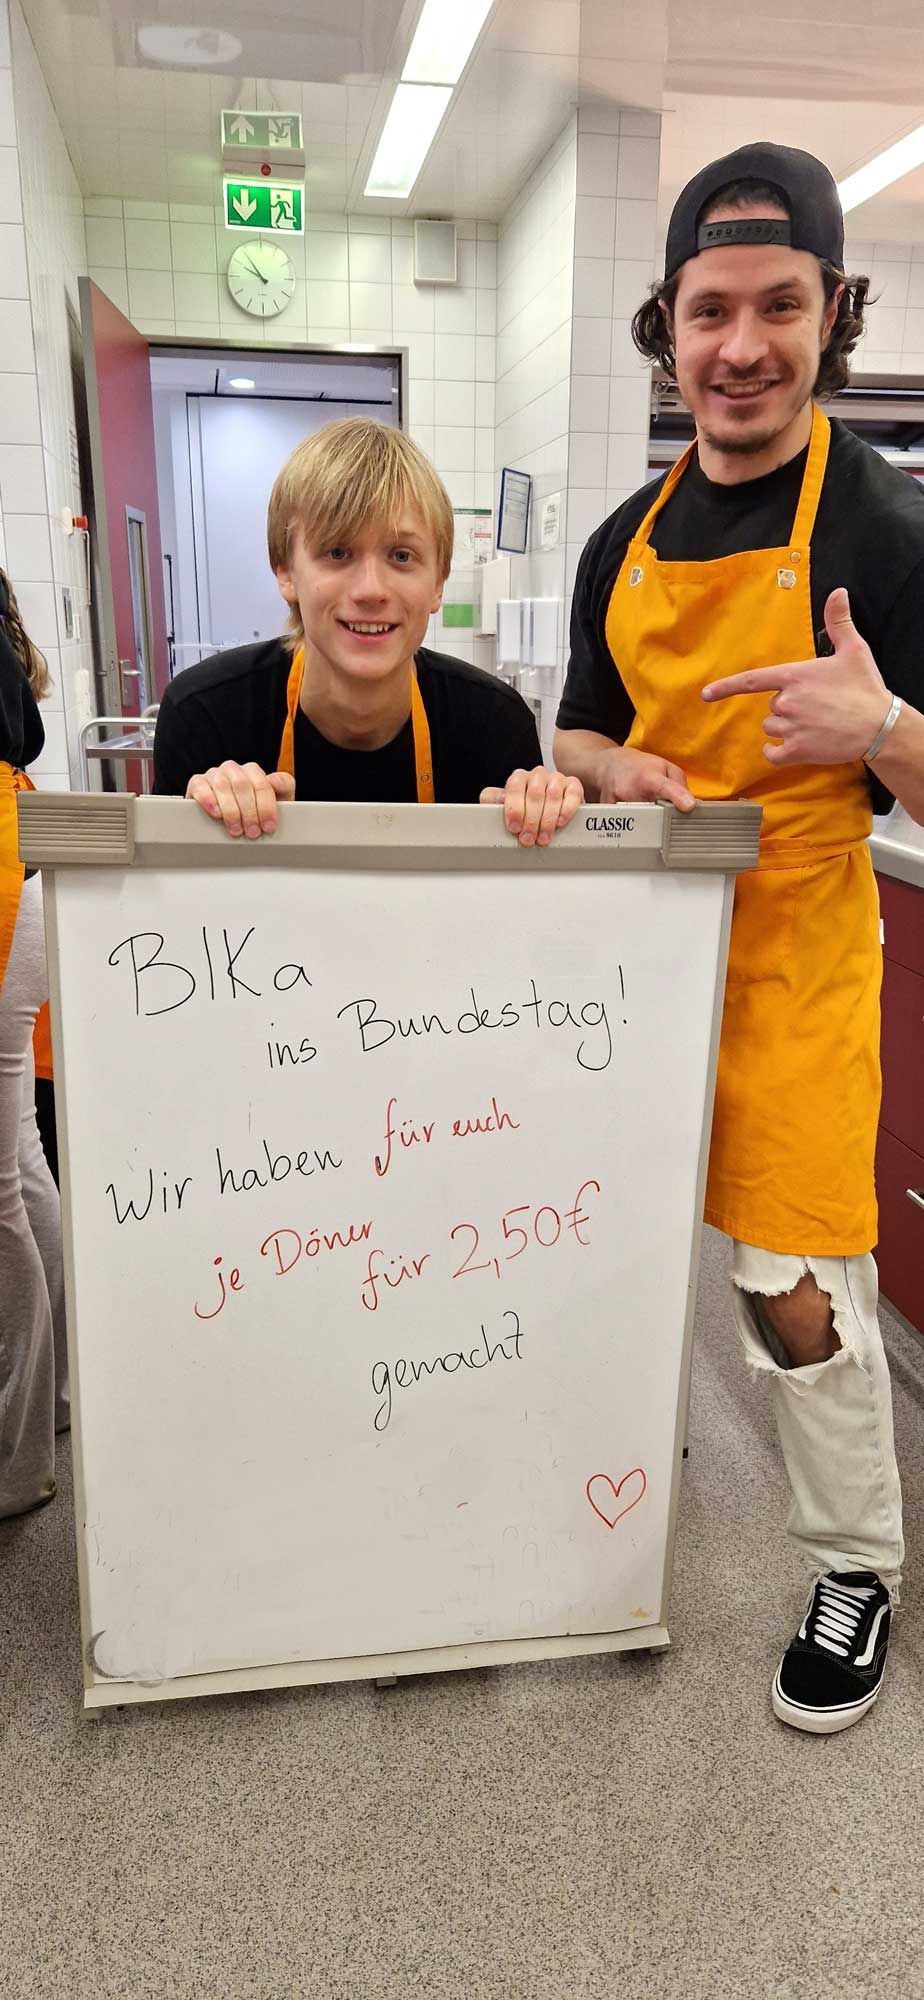 CLASSIC
BIKa
ins Bundestag!
Wir haben für euch
je Döner
für 2,50€
gemacht